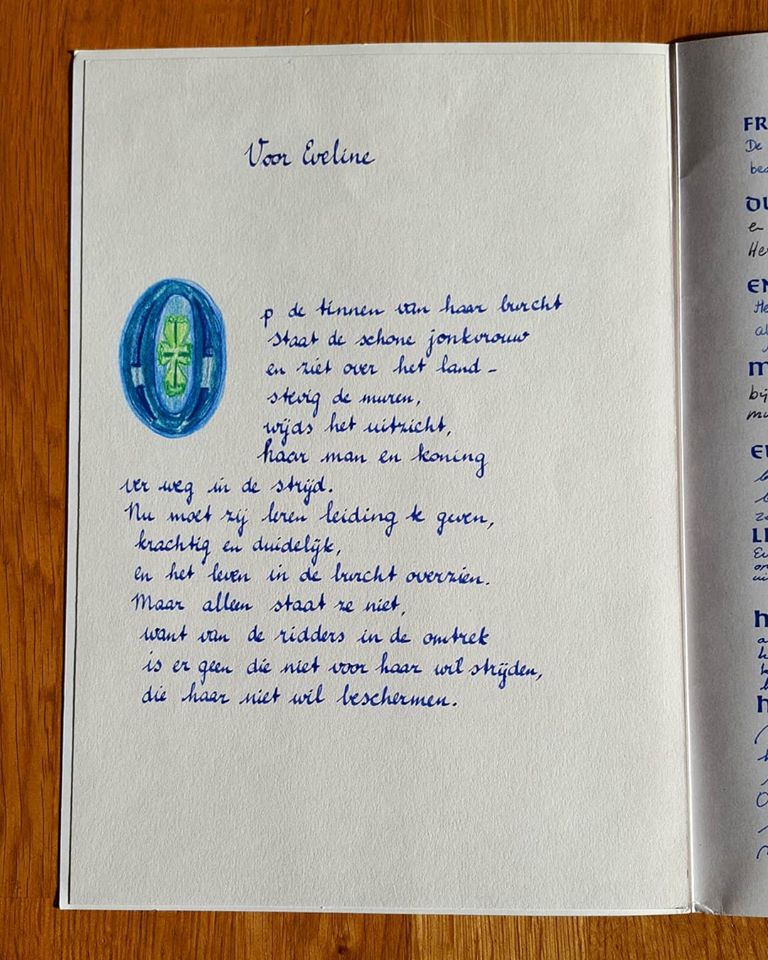 Voor Eveline
Op de tinnen van haar burcht
staat de schone jonkvrouw
en ziet over het land -
stevig de muren,
wijds het uitzicht,
haar man en koning
ver weg in de strijd.
Nu moet zij leren leiding te geven,
krachtig en duidelijk,
en het leven in de burcht overzien.
Maar alleen staat ze niet,
want van de ridders in de omtrek
is er geen die niet voor haar wil strijden,
die haar niet wil beschermen.
FR
De
bes
DU
en
He
EN
He
al
m
bij
mu
EL
LI